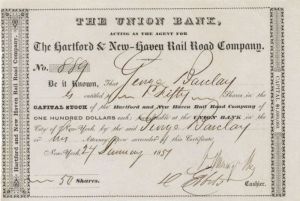 THE UNION BANK,
ACTING AS THE AGENT FOR
The Hartford & New-Haven Rail Road Company.
No. 889
Be it Known, That George Barclay
is entitled to Fifty Shares in the
CAPITAL STOCK of the Hartford and New Haven Rail Road Company of
ONE HUNDRED DOLLARS each, transferable at the UNION BANK, in
the City of New-York, by the said George Barclay
or his Attorney on surrender of this Certificate.
New-York, 27 January 185
50 Shares.
Cashier.
Hartford and New Haven Rail Road Company.